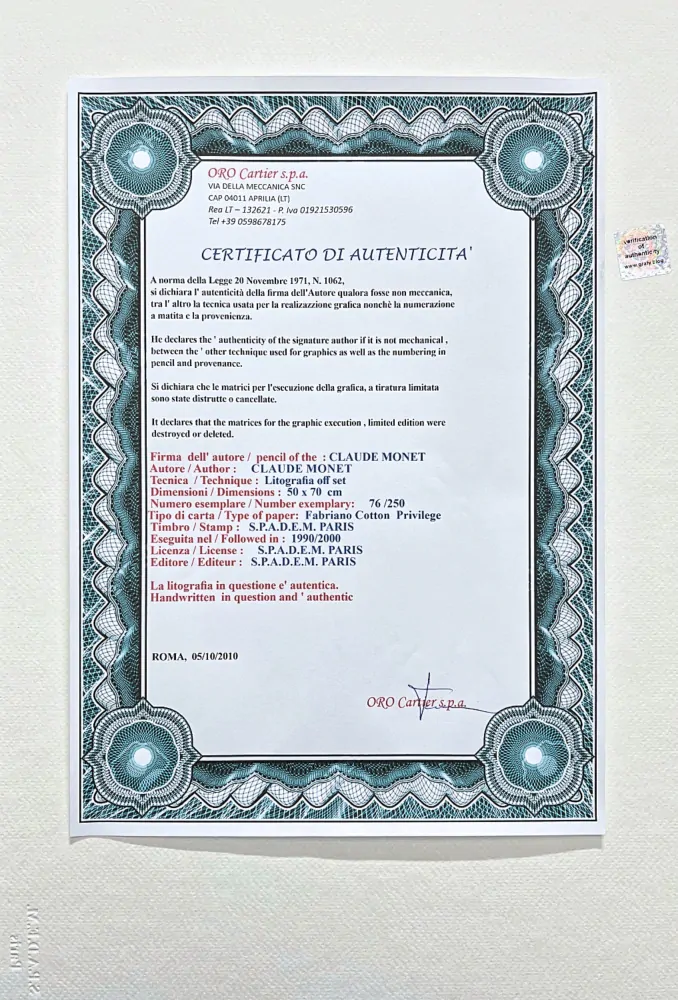 ORO Cartier s.p.a.
VIA DELLA MECCANICA SNC
CAP 04011 APRILIA (LT)
Rea LT – 132621 - P. Iva 01921530596
Tel +39 0598678175
CERTIFICATO DI AUTENTICITA'
A norma della Legge 20 Novembre 1971, N. 1062,
si dichiara l' autenticità della firma dell'Autore qualora fosse non meccanica,
tra l' altro la tecnica usata per la realizazzione grafica nonchè la numerazione
a matita e la provenienza.
He declares the ' authenticity of the signature author if it is not mechanical ,
between the ' other technique used for graphics as well as the numbering in
pencil and provenance.
Si dichiara che le matrici per l'esecuzione della grafica, a tiratura limitata
sono state distrutte o cancellate.
It declares that the matrices for the graphic execution , limited edition were
destroyed or deleted.
Firma dell' autore / pencil of the : CLAUDE MONET
Autore / Author : CLAUDE MONET
Tecnica / Technique : Litografia off set
Dimensioni / Dimensions : 50 x 70 cm
Numero esemplare / Number exemplary: 76 /250
Tipo di carta / Type of paper: Fabriano Cotton Privilege
Timbro / Stamp : S.P.A.D.E.M. PARIS
Eseguita nel / Followed in : 1990/2000
Licenza / License : S.P.A.D.E.M. PARIS
Editore / Editeur : S.P.A.D.E.M. PARIS
La litografia in questione e' autentica.
Handwritten in question and ' authentic
ROMA, 05/10/2010
ORO Cartier s.p.a.
verification
of
authenticity
S.P.A.D.E.M.
Paris